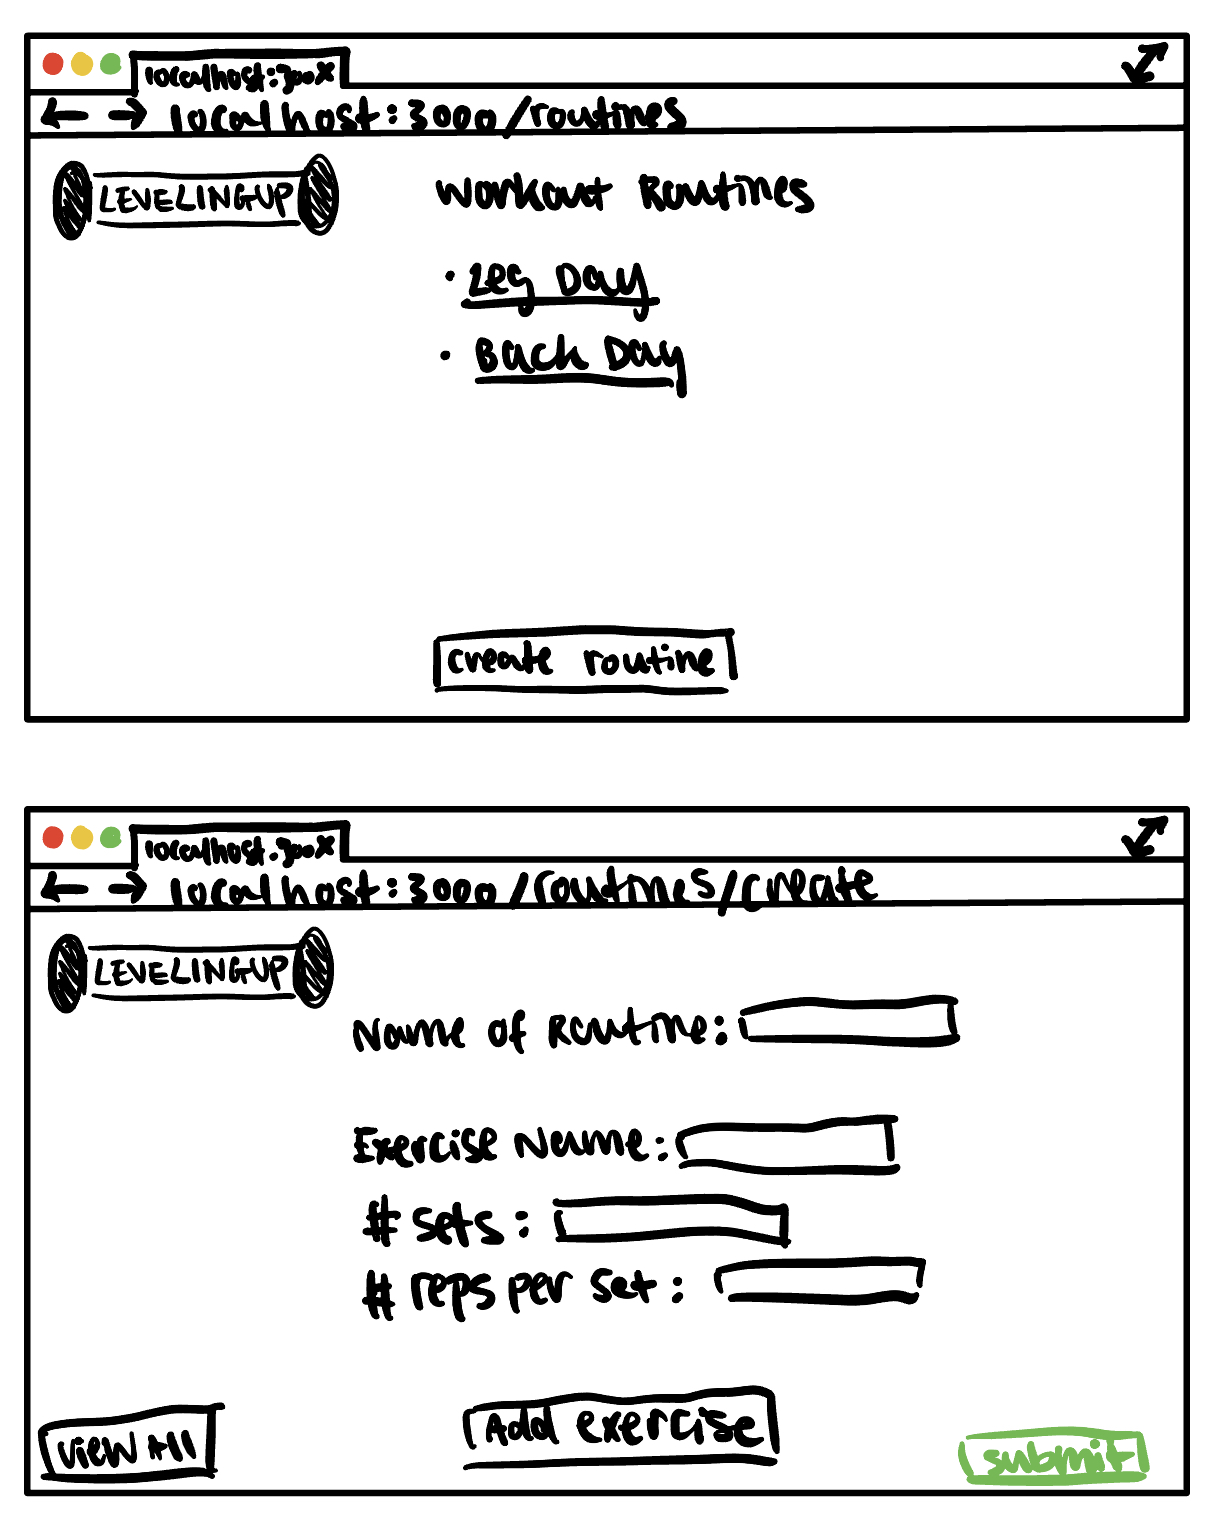 localhost:300X
localhost:3000/routines
LEVELINGUP
Workout Routines
• Leg Day
• Back Day
create routine
localhost:300X
localhost:3000/routines/create
LEVELINGUP
Name of Routine:
Exercise Name:
# sets:
# reps per set:
View All
Add exercise
submit